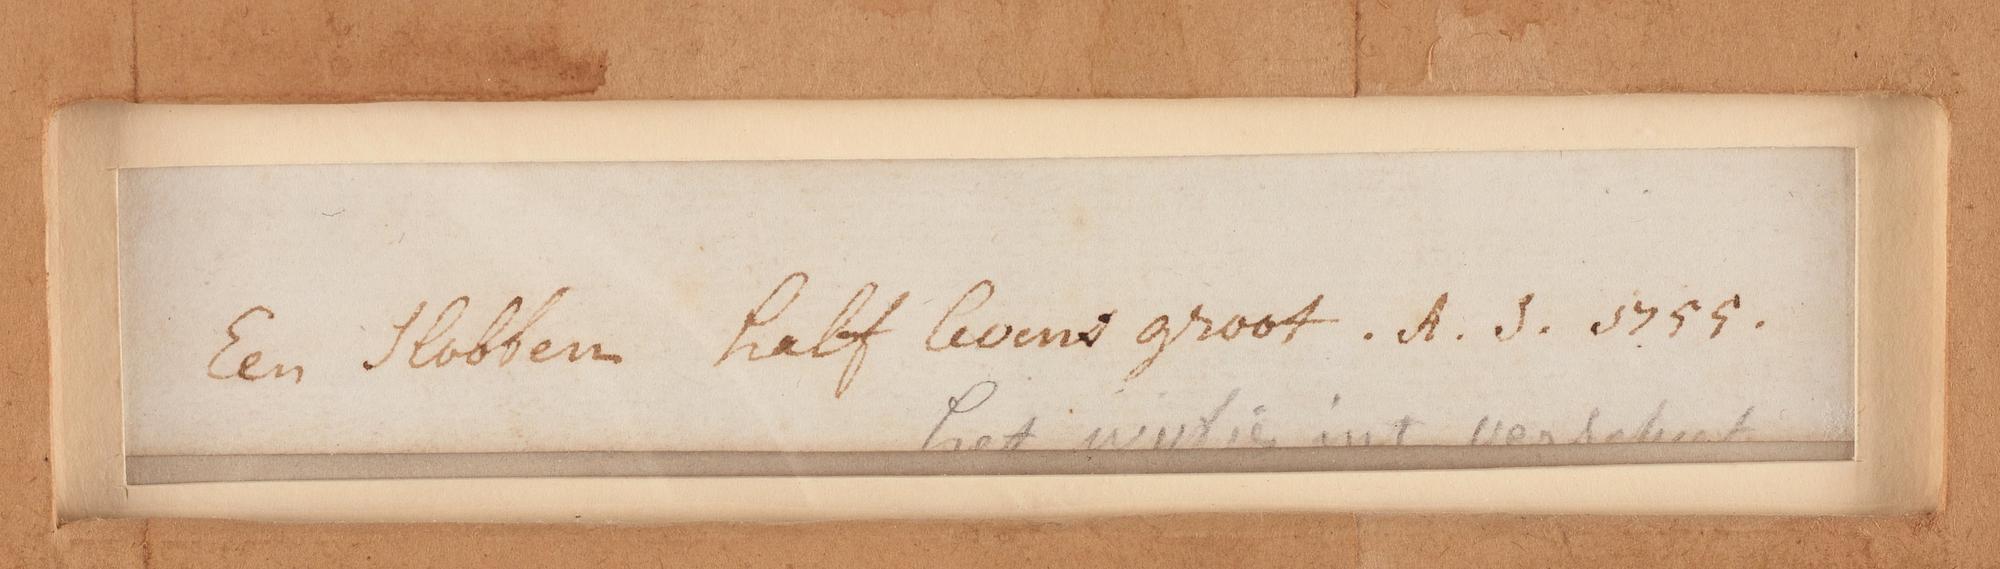 Een Slobben half levens groot. A. S. 1755.
het wyfie int verschut